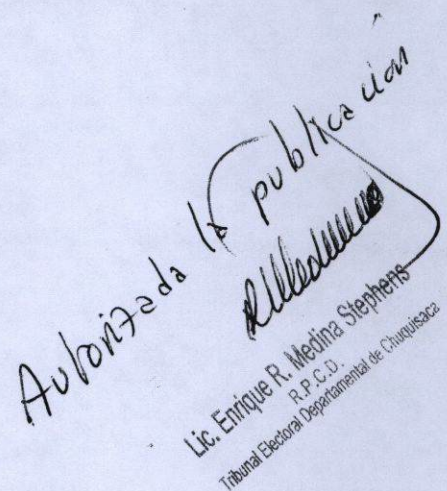 Autorizada la publicación
Lic. Enrique R. Medina Stephens
R.P.C.D.
Tribunal Electoral Departamental de Chuquisaca